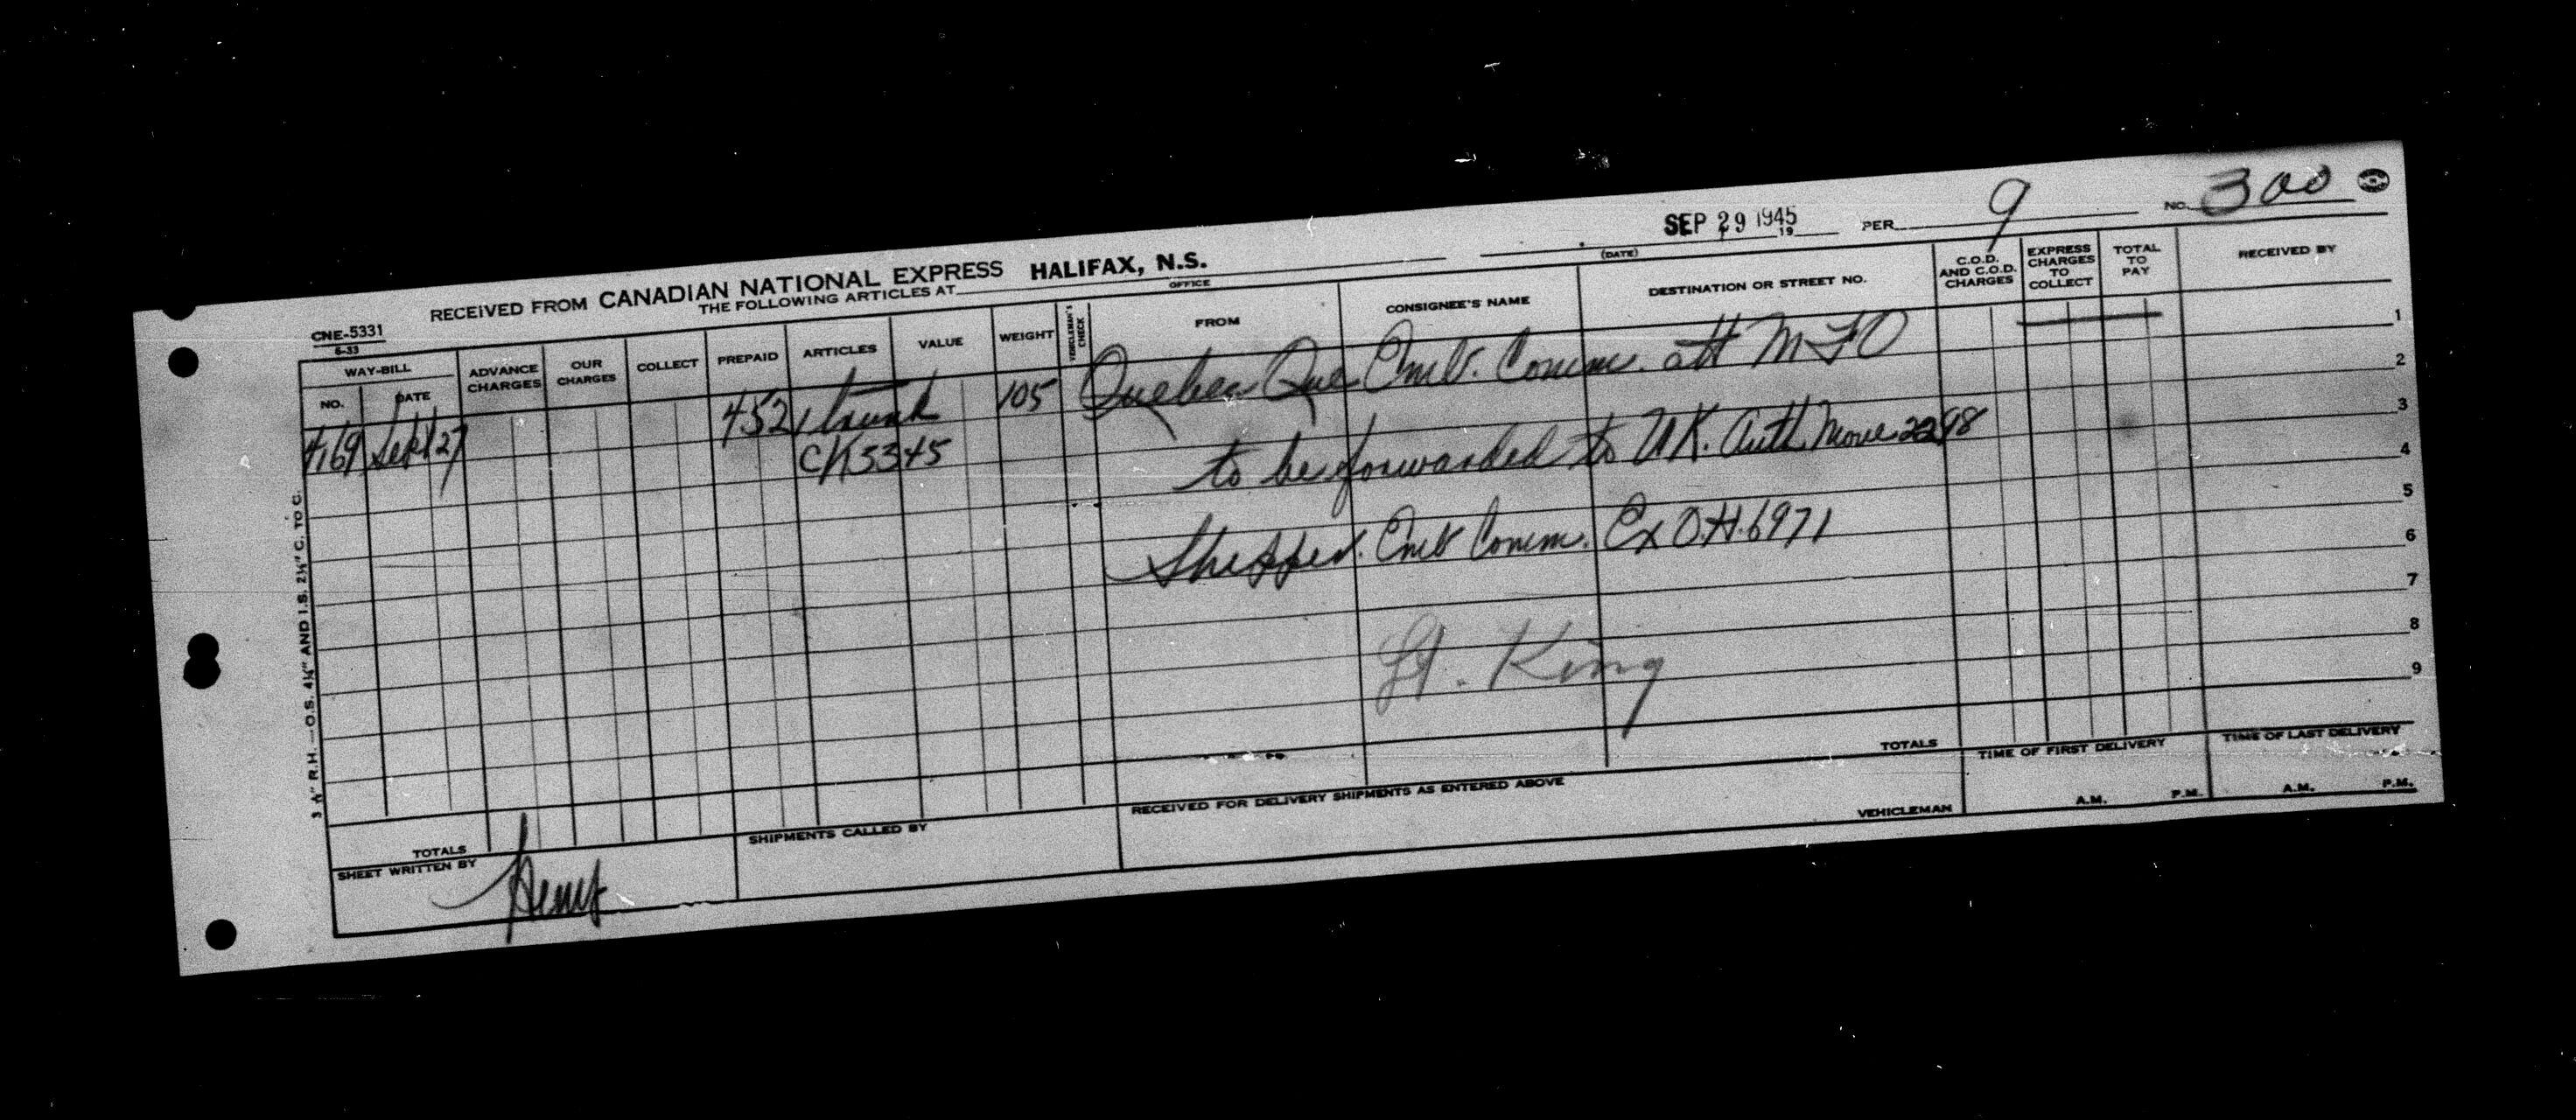 NO. 300
SEP 29 1945 19 PER 9
(DATE)
RECEIVED FROM CANADIAN NATIONAL EXPRESS HALIFAX, N.S.
THE FOLLOWING ARTICLES AT
OFFICE
CNE-5331
6-33
WAY-BILL
NO. DATE ADVANCE CHARGES OUR CHARGES COLLECT PREPAID ARTICLES VALUE WEIGHT VEHICLEMAN'S CHECK FROM CONSIGNEE'S NAME DESTINATION OR STREET NO. C.O.D. AND C.O.D. CHARGES EXPRESS CHARGES TO COLLECT TOTAL TO PAY RECEIVED BY
4169 Sept 27 452 1 trunk 105 Quebec Que Emb. Comm. att MFO 1
CK5345
2
to be forwarded to UK. Auth Move 2298 3
4
Shipper. Emb Comm. Ex O.H. 6971 5
6
7
Lt. King 8
9
TOTALS
TIME OF FIRST DELIVERY TIME OF LAST DELIVERY
RECEIVED FOR DELIVERY SHIPMENTS AS ENTERED ABOVE
VEHICLEMAN A.M. P.M. A.M. P.M.
TOTALS
SHEET WRITTEN BY SHIPMENTS CALLED BY
3 ⅛" R.H. — O.S. 4¼" AND I.S. 2¼" C. TO C.